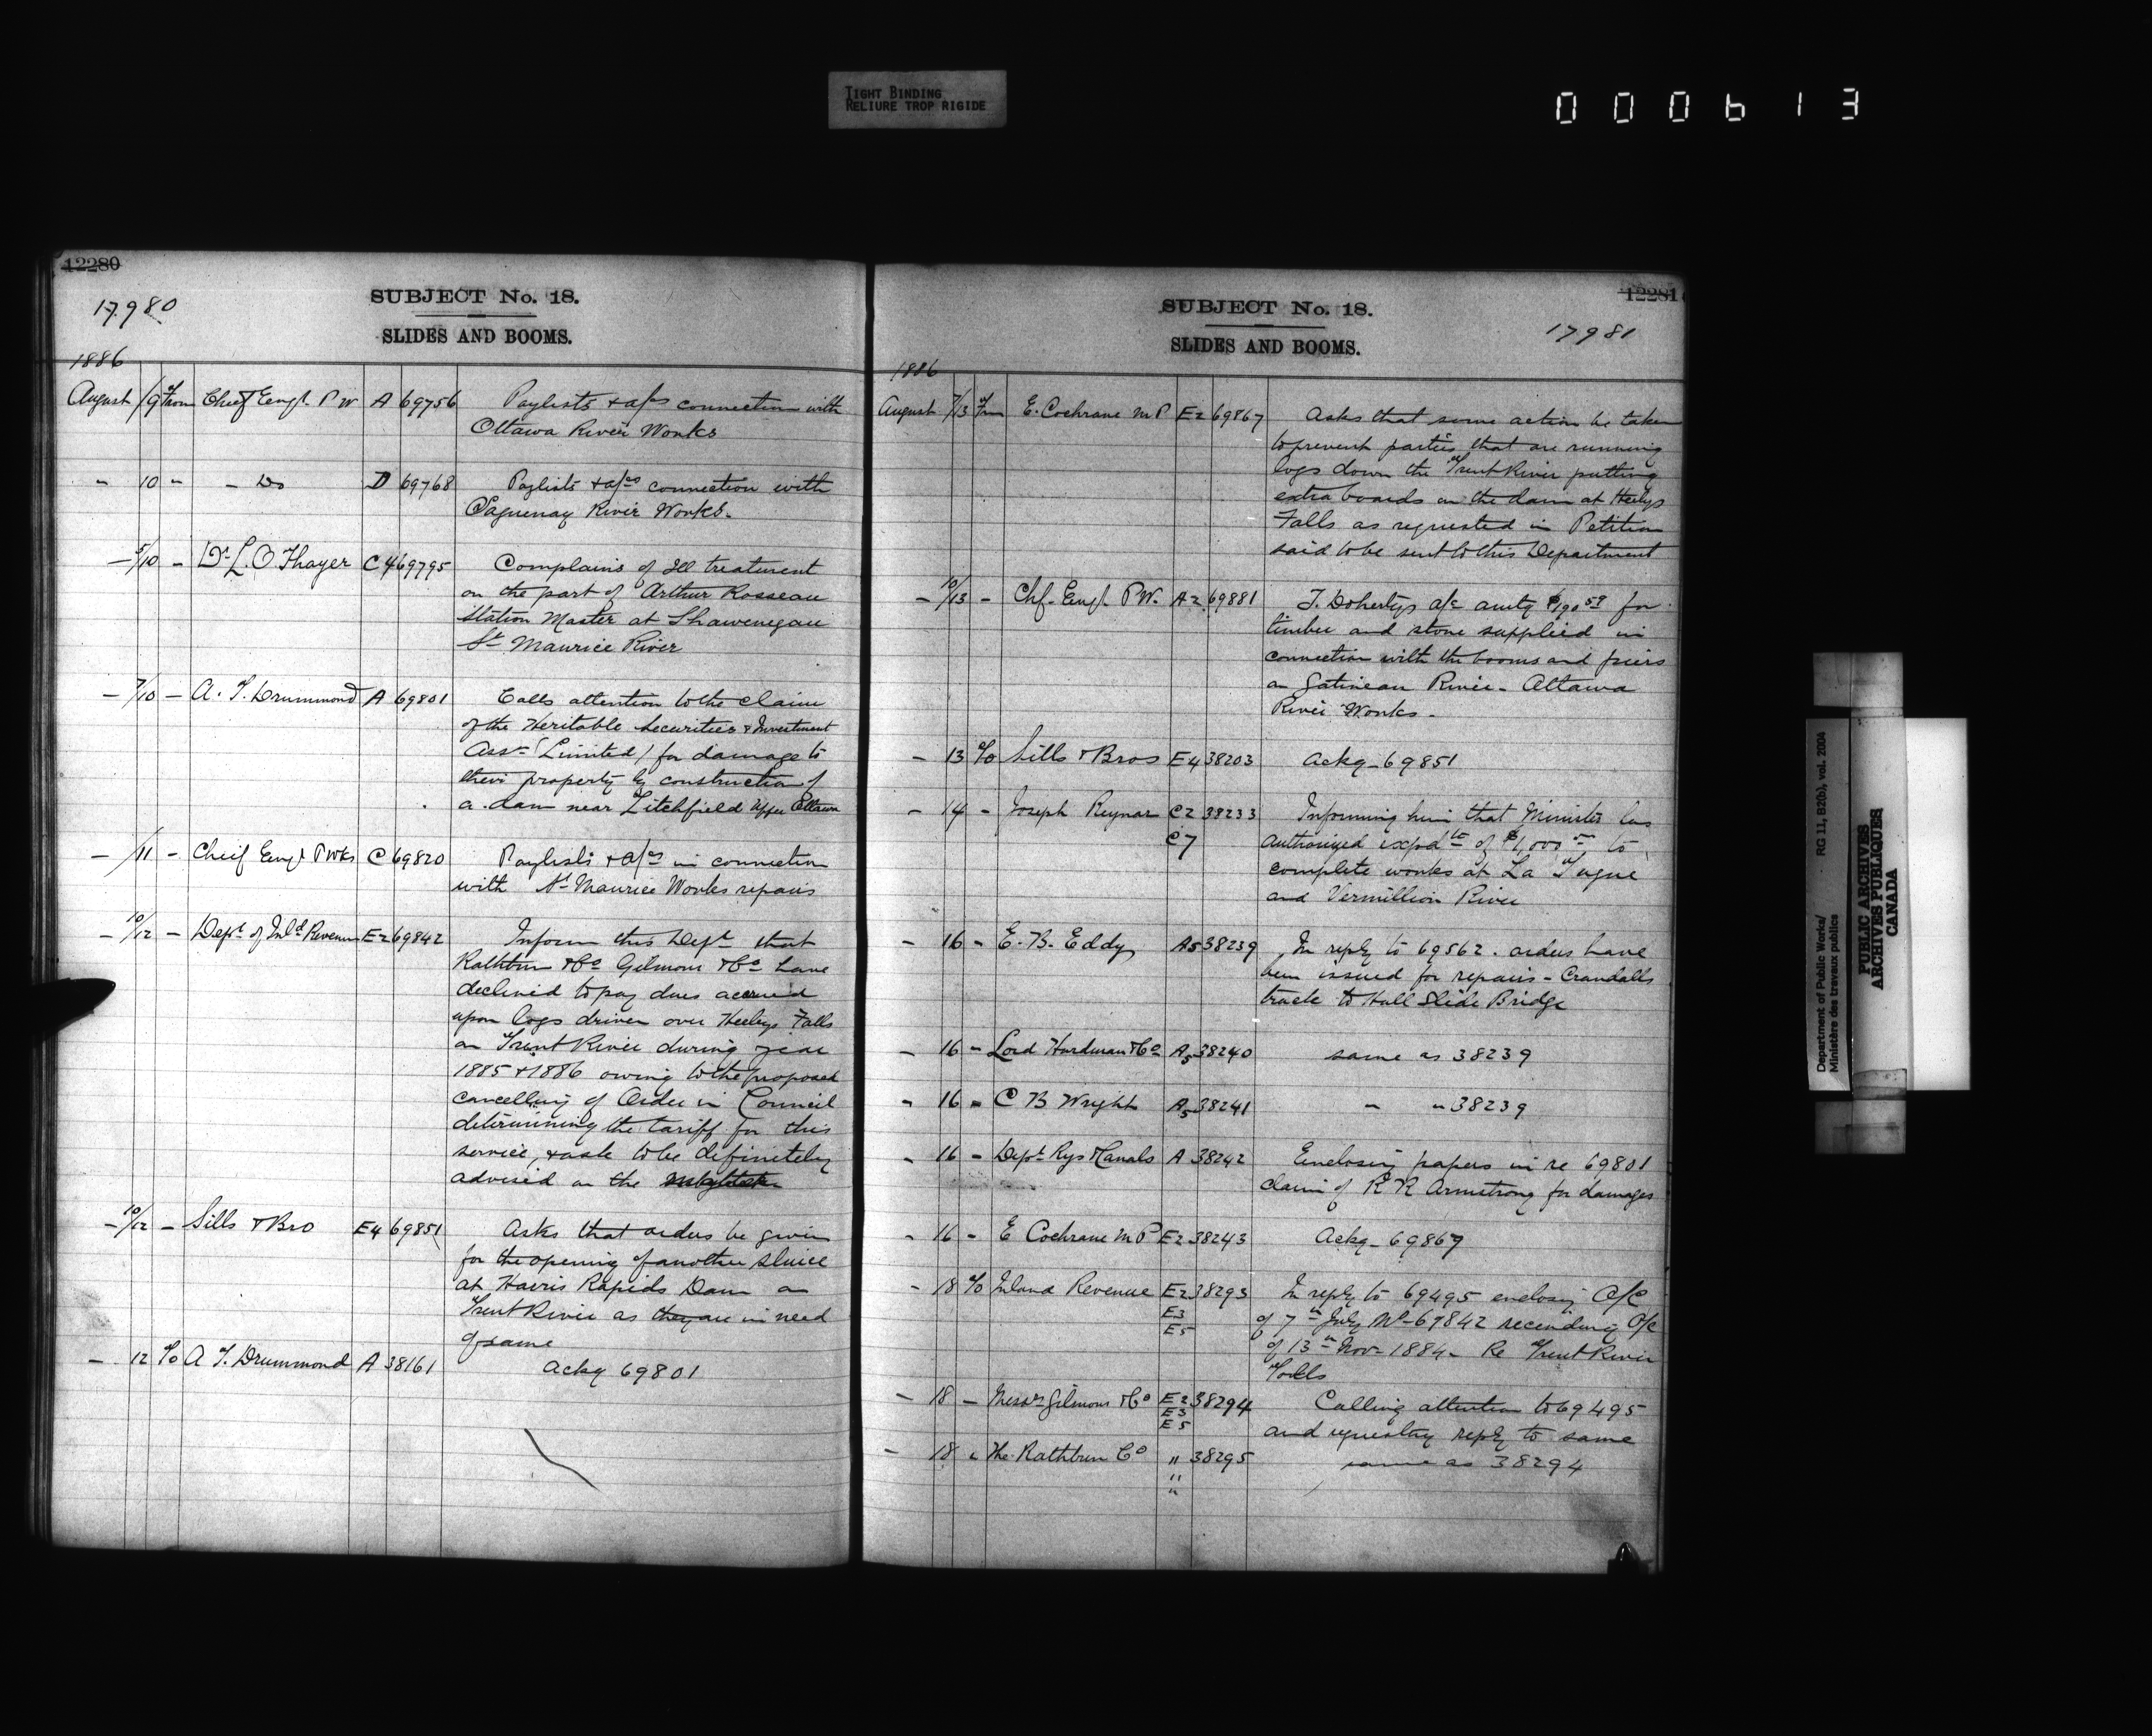 TIGHT BINDING
RELIURE TROP RIGIDE
000613
12280
17.980
SUBJECT No. 18.
SLIDES AND BOOMS.
1886
August /9 from Chief Engr. P W A 69756 Paylists & a/cs connection with
Ottawa River Works
" 10 " " Do D 69768 Paylists & a/cs connection with
Saguenay River Works.
— 5/10 — Dr L. O. Thayer C4 69795 Complains of Ill treatment
on the part of Arthur Rosseau
Station Master at Shawenegan
St Maurice River
— 7/10 — A. T. Drummond A 69801 Calls attention to the claim
of the Heritable Securities & Investment
Assn (Limited) for damage to
their property by construction of
a dam near Litchfield Upper Ottawa
— /11 — Cheif Engr PWks C 69820 Paylists & a/cs in connection
with St Maurice Works repairs
— 10/12 — Dept of Inld Revenue E2 69842 Inform this Dept that
Rathbun & Co Gilmour & Co have
declined to pay dues accrued
upon logs driven over Heelys Falls
on Trent River during year
1885 & 1886 owing to the proposed
cancelling of Order in Council
determining the tariff for this
service, & ask to be definitely
advised on the
— 10/12 — Sills & Bro E4 69851 Asks that orders be given
for the opening of another sluice
at Harris Rapids Dam on
Trent River as they are in need
of same
— 12 To A T. Drummond A 38161 Ackg 69801
12281
17981
SUBJECT No. 18.
SLIDES AND BOOMS.
1886
August 7/13 from E. Cochrane M P E2 69867 Asks that some action be taken
to prevent parties that are running
logs down the Trent River putting
extra boards on the dam at Heelys
Falls as requested in Petition
said to be sent to this Department
— 10/13 — Chf. Engr. P W. A2 69881 T. Dohertys a/c amtg $190 59 for
timber and stone supplied in
connection with the booms and piers
on Gatineau River - Ottawa
River Works.
— 13 To Sills & Bros E4 38203 Ackg - 69851
— 14 — Joseph Reynar C2 38233 Informing him that Minister has
C7 authorized expdte of $1,000 to
complete works at La Tuque
and Vermillion River
— 16 — E. B. Eddy A5 38239 In reply to 69562. orders have
been issued for repairs - Crandalls
track to Hull Slide Bridge
— 16 — Lord Hurdman & Co A5 38240 same as 38239
— 16 — C B Wright A5 38241 " " 38239
— 16 — Dept Rys & Canals A 38242 Enclosing papers in re 69801
claim of R R Armstrong for damages
— 16 — E Cochrane M P E2 38243 Ackg - 69867
— 18 To Inland Revenue E2 38293 In reply to 69495 enclosing O/C
E3 of 7th July No 69842 recinding O/C
E5 of 13th Nov 1884 - Re Trent River
Tolls
— 18 — Messrs Gilmour & Co E2 38294 Calling attention to 69495
E3
E5 and requesting reply to same
— 18 " The Rathbun Co " 38295 same as 38294
"
"
Department of Public Works/
Ministère des travaux publics
RG 11, B2(b), vol. 2004
PUBLIC ARCHIVES
ARCHIVES PUBLIQUES
CANADA